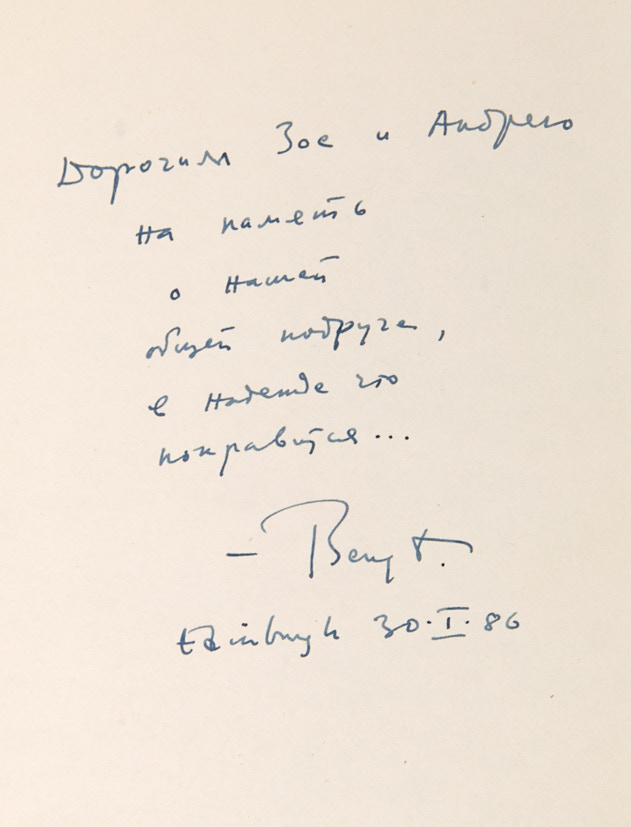 Дорогим Зое и Андрею
на память
о нашей
общей подруге,
в надежде что
понравится...
– Bengt.
Edinburgh 30.I.86